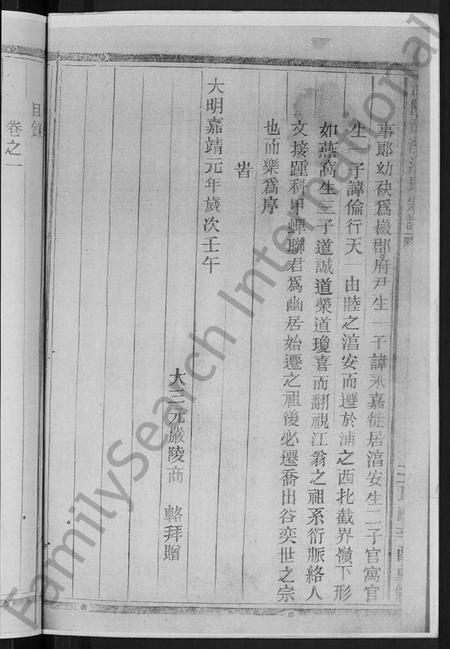 事耶幼袂為嚴郡府尹生一子諱永嘉徙居湻安生二子官寓官
生一子諱倫行天一由睦之湻安而遷於浦之西北截界嶺下形
如燕窩生三子道誠道榮道瓊喜而翻視江翁之祖系衍脈絡人
文接踵科甲蟬聯君為幽居始遷之祖後必遷喬出谷奕世之宗
也而樂為序
旹
大明嘉靖元年歲次壬午
大三元嚴陵商 輅拜贈
目錄
卷之一
FamilySearch International